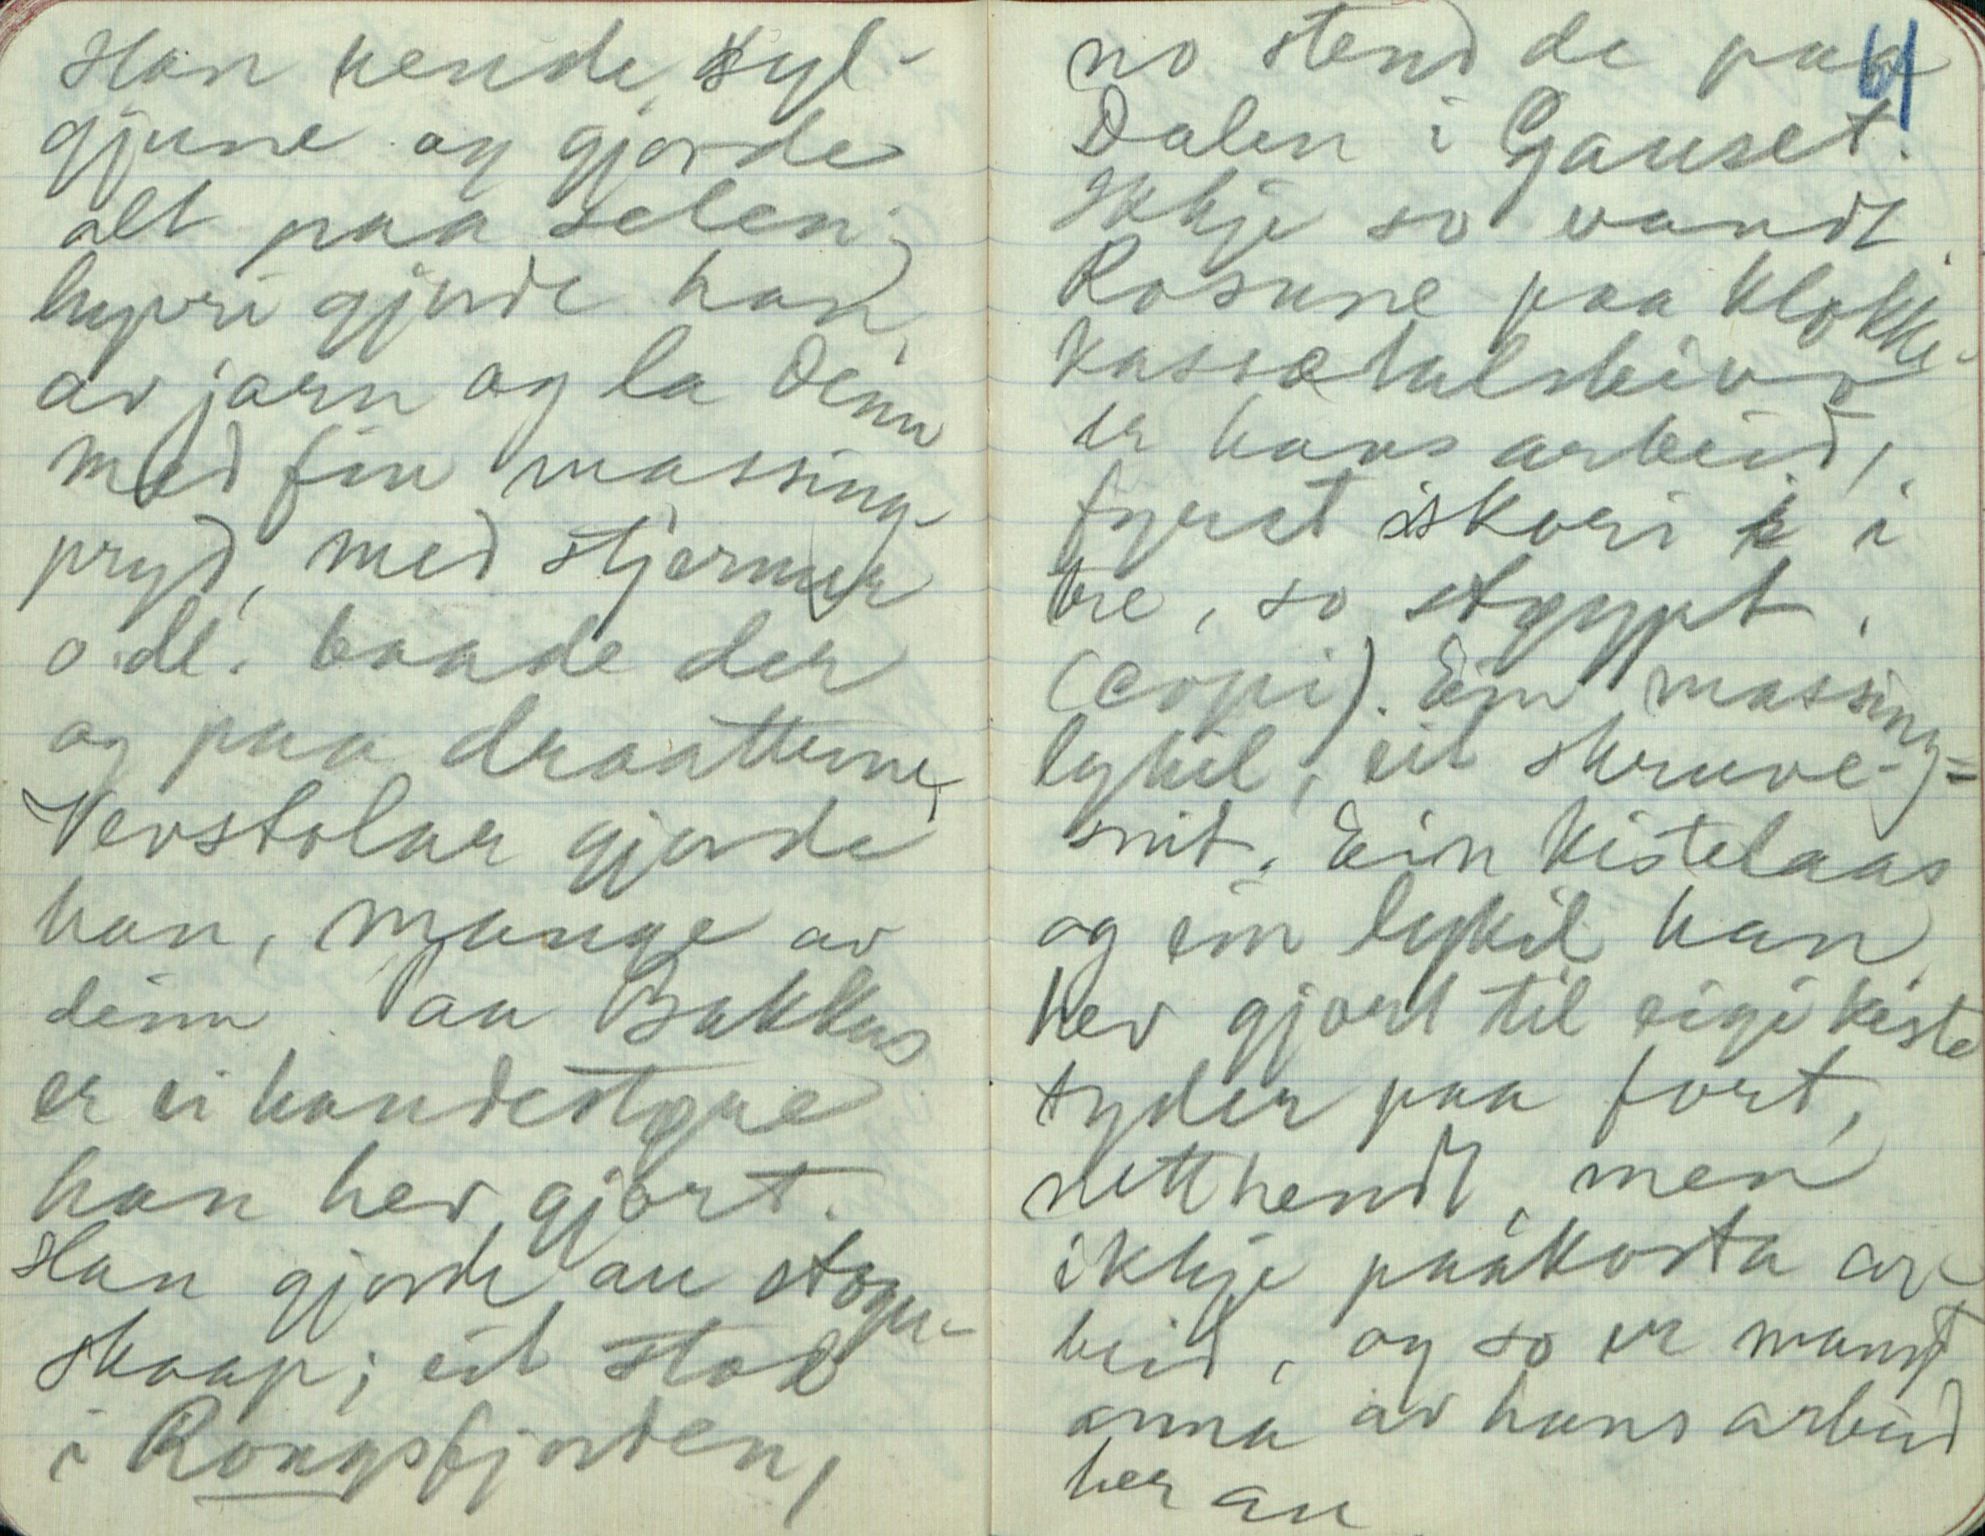 Han kende syl-
gjune og gjorde
alt paa selen;
høvri gjorde han
av jarn og la deim
med fin massing-
pryd, med stjernur
o. dl. baade der
og paa draatterne,
Vevstolar gjorde
han, mange av
deim. Paa Bakkus
er ei handestøre
han hev gjort.
Han gjorde au stogu-
skaap; eit stod
i Rongsfjorden,
no stend de paa
61
Dalen i Gauset.
Ikkje so vandt.
Rosune paa klokke-
kassetalskiva
er hans arbeid,
fyrst skori i
tre, so støypt.
(Copi). Ein massing-
lykil, eit skruve-
snit. Ein kistelaas
og ein lykil han
hev gjort til eigi kiste
tyder paa fort,
netthendt, men
ikkje paakosta ar-
beid, og so er mangt
anna av hans arbeid
her au